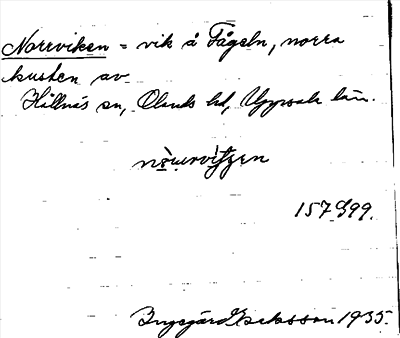 Norrviken = vik å Fågeln, norra
kusten av
Hållnäs sn, Olands hd, Uppsala län.
157 G99.
Ingegärd Isaksson 1935.